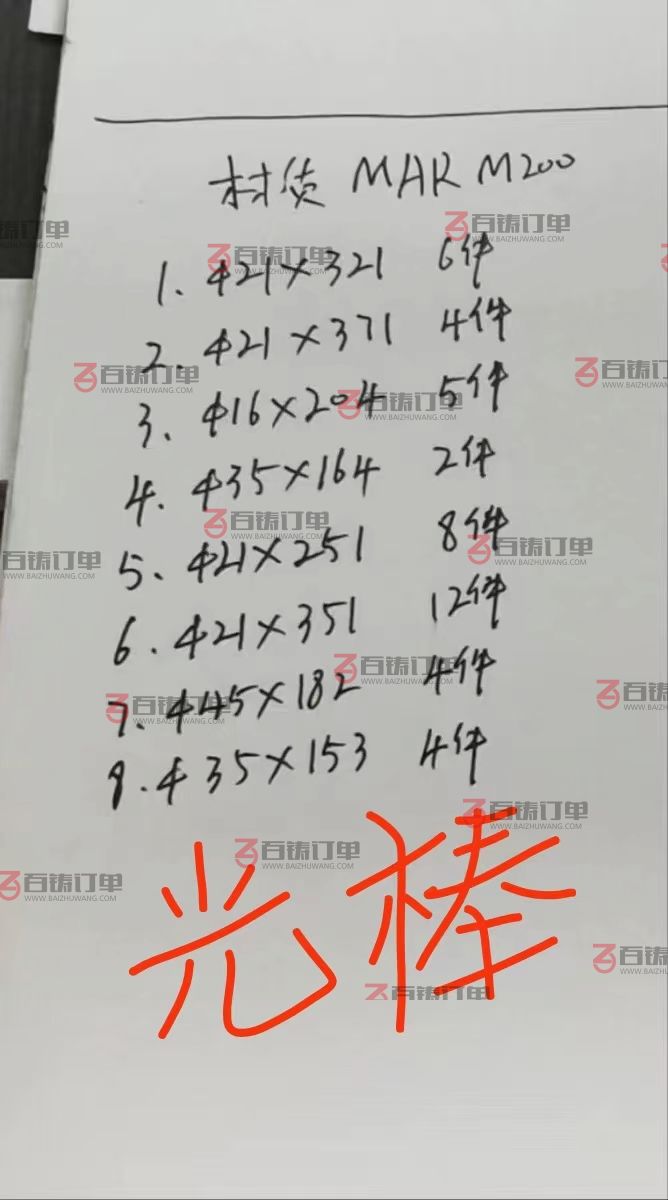 材质 MAR M200
1. φ21×321 6件
2. φ21×371 4件
3. φ16×204 5件
4. φ35×164 2件
5. φ21×251 8件
6. φ21×351 12件
7. φ45×182 4件
8. φ35×153 4件
光棒
百铸订单
WWW.BAIZHUWANG.COM